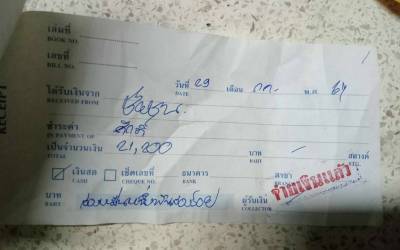 เล่มที่
BOOK NO.
เลขที่
BILL NO.
วันที่ 29 เดือน กค. พ.ศ. 64
DATE
ได้รับเงินจาก
RECEIVED FROM
ชำระค่า
IN PAYMENT OF
เป็นจำนวนเงิน 21,200 บาท - สตางค์
TOTAL BAHT STG.
☑ เงินสด ☐ เช็คเลขที่ ธนาคาร สาขา
CASH CHEQUE NO. BANK
จ่ายเงินแล้ว
บาท สองหมื่นหนึ่งพันสองร้อย ผู้รับเงิน
BAHT COLLECTOR
RECEIPT